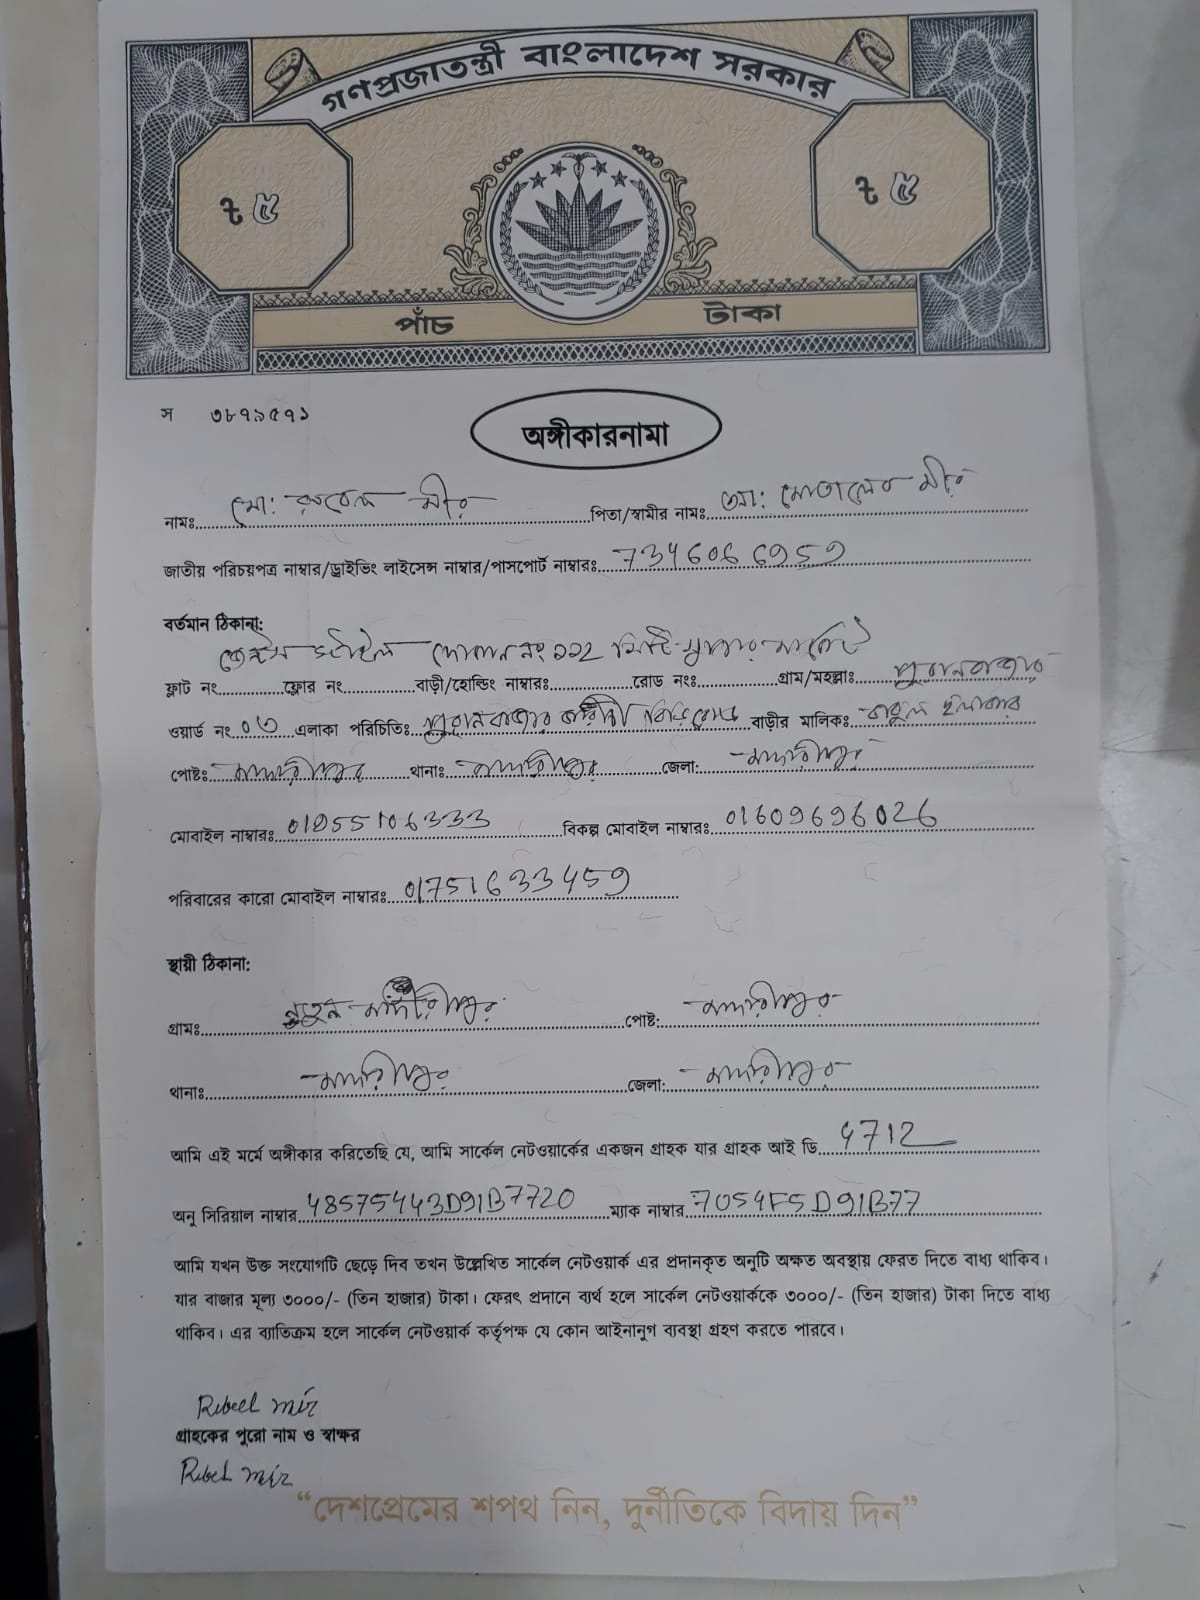 গণপ্রজাতন্ত্রী বাংলাদেশ সরকার
৳ ৫ ৳ ৫
পাঁচ টাকা
স ৩৮৭৯৫৭১
অঙ্গীকারনামা
নামঃ মো: রুবেল মীর পিতা/স্বামীর নাম: মো: মোতালেব মীর
জাতীয় পরিচয়পত্র নাম্বার/ড্রাইভিং লাইসেন্স নাম্বার/পাসপোর্ট নাম্বারঃ 7346066959
বর্তমান ঠিকানা:
স্টাইল দোকান নং ১১২ সুপার মার্কেট
ফ্লাট নং ফ্লোর নং বাড়ী/হোল্ডিং নাম্বারঃ রোড নংঃ গ্রাম/মহল্লাঃ পুরানবাজার
ওয়ার্ড নং ০৩ এলাকা পরিচিতিঃ পুরানবাজার বাড়ীর মালিকঃ
পোষ্টঃ মাদারীপুর থানাঃ মাদারীপুর জেলা: মাদারীপুর
মোবাইল নাম্বারঃ 01955106333 বিকল্প মোবাইল নাম্বারঃ 01609696026
পরিবারের কারো মোবাইল নাম্বারঃ 01751633459
স্থায়ী ঠিকানা:
গ্রামঃ নতুন মাদারীপুর পোষ্ট: মাদারীপুর
থানাঃ মাদারীপুর জেলা: মাদারীপুর
আমি এই মর্মে অঙ্গীকার করিতেছি যে, আমি সার্কেল নেটওয়ার্কের একজন গ্রাহক যার গ্রাহক আই ডি 4712
অনু সিরিয়াল নাম্বার 48575443D91B7720 ম্যাক নাম্বার 7054F5D91B77
আমি যখন উক্ত সংযোগটি ছেড়ে দিব তখন উল্লেখিত সার্কেল নেটওয়ার্ক এর প্রদানকৃত অনুটি অক্ষত অবস্থায় ফেরত দিতে বাধ্য থাকিব।
যার বাজার মূল্য ৩০০০/- (তিন হাজার) টাকা। ফেরৎ প্রদানে ব্যর্থ হলে সার্কেল নেটওয়ার্ককে ৩০০০/- (তিন হাজার) টাকা দিতে বাধ্য
থাকিব। এর ব্যাতিক্রম হলে সার্কেল নেটওয়ার্ক কর্তৃপক্ষ যে কোন আইনানুগ ব্যবস্থা গ্রহণ করতে পারবে।
Rubel mir
গ্রাহকের পুরো নাম ও স্বাক্ষর
Rubel mir
“দেশপ্রেমের শপথ নিন, দুর্নীতিকে বিদায় দিন”